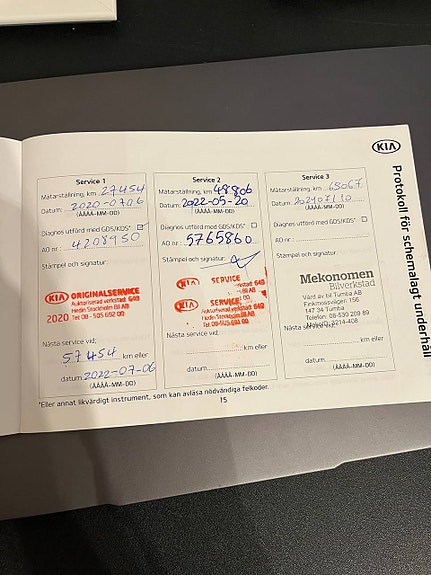 KIA
Protokoll för schemalagt underhåll
Service 1
Mätarställning, km 27454
Datum: 2020-0706
(ÅÅÅÅ-MM-DD)
Diagnos utförd med GDS/KDS*
AO nr : 4208950
Stämpel och signatur:
KIA ORIGINALSERVICE
Auktoriserad verkstad 649
Hedin Stockholm Bil AB
2020 Tel 08 - 505 692 00
Nästa service vid,
57454 km eller
datum 2022-07-06
(ÅÅÅÅ-MM-DD)
Service 2
Mätarställning, km 48806
Datum: 2022-05-20
(ÅÅÅÅ-MM-DD)
Diagnos utförd med GDS/KDS*
AO nr : 5765860
Stämpel och signatur:
KIA SERVICE
KIA SERVICE
Auktoriserad verkstad 649
Hedin Stockholm Bil AB
Tel 08-505 692 00
Nästa service vid,
km eller
datum
(ÅÅÅÅ-MM-DD)
Service 3
Mätarställning, km 63067
Datum:
(ÅÅÅÅ-MM-DD)
Diagnos utförd med GDS/KDS*
AO nr :
Stämpel och signatur:
Mekonomen
Bilverkstad
Vård av bil Tumba AB
147 34 Tumba
Telefon: 08-530 209 89
Nästa service vid,
km eller
datum
(ÅÅÅÅ-MM-DD)
*Eller annat likvärdigt instrument, som kan avläsa nödvändiga felkoder.
15